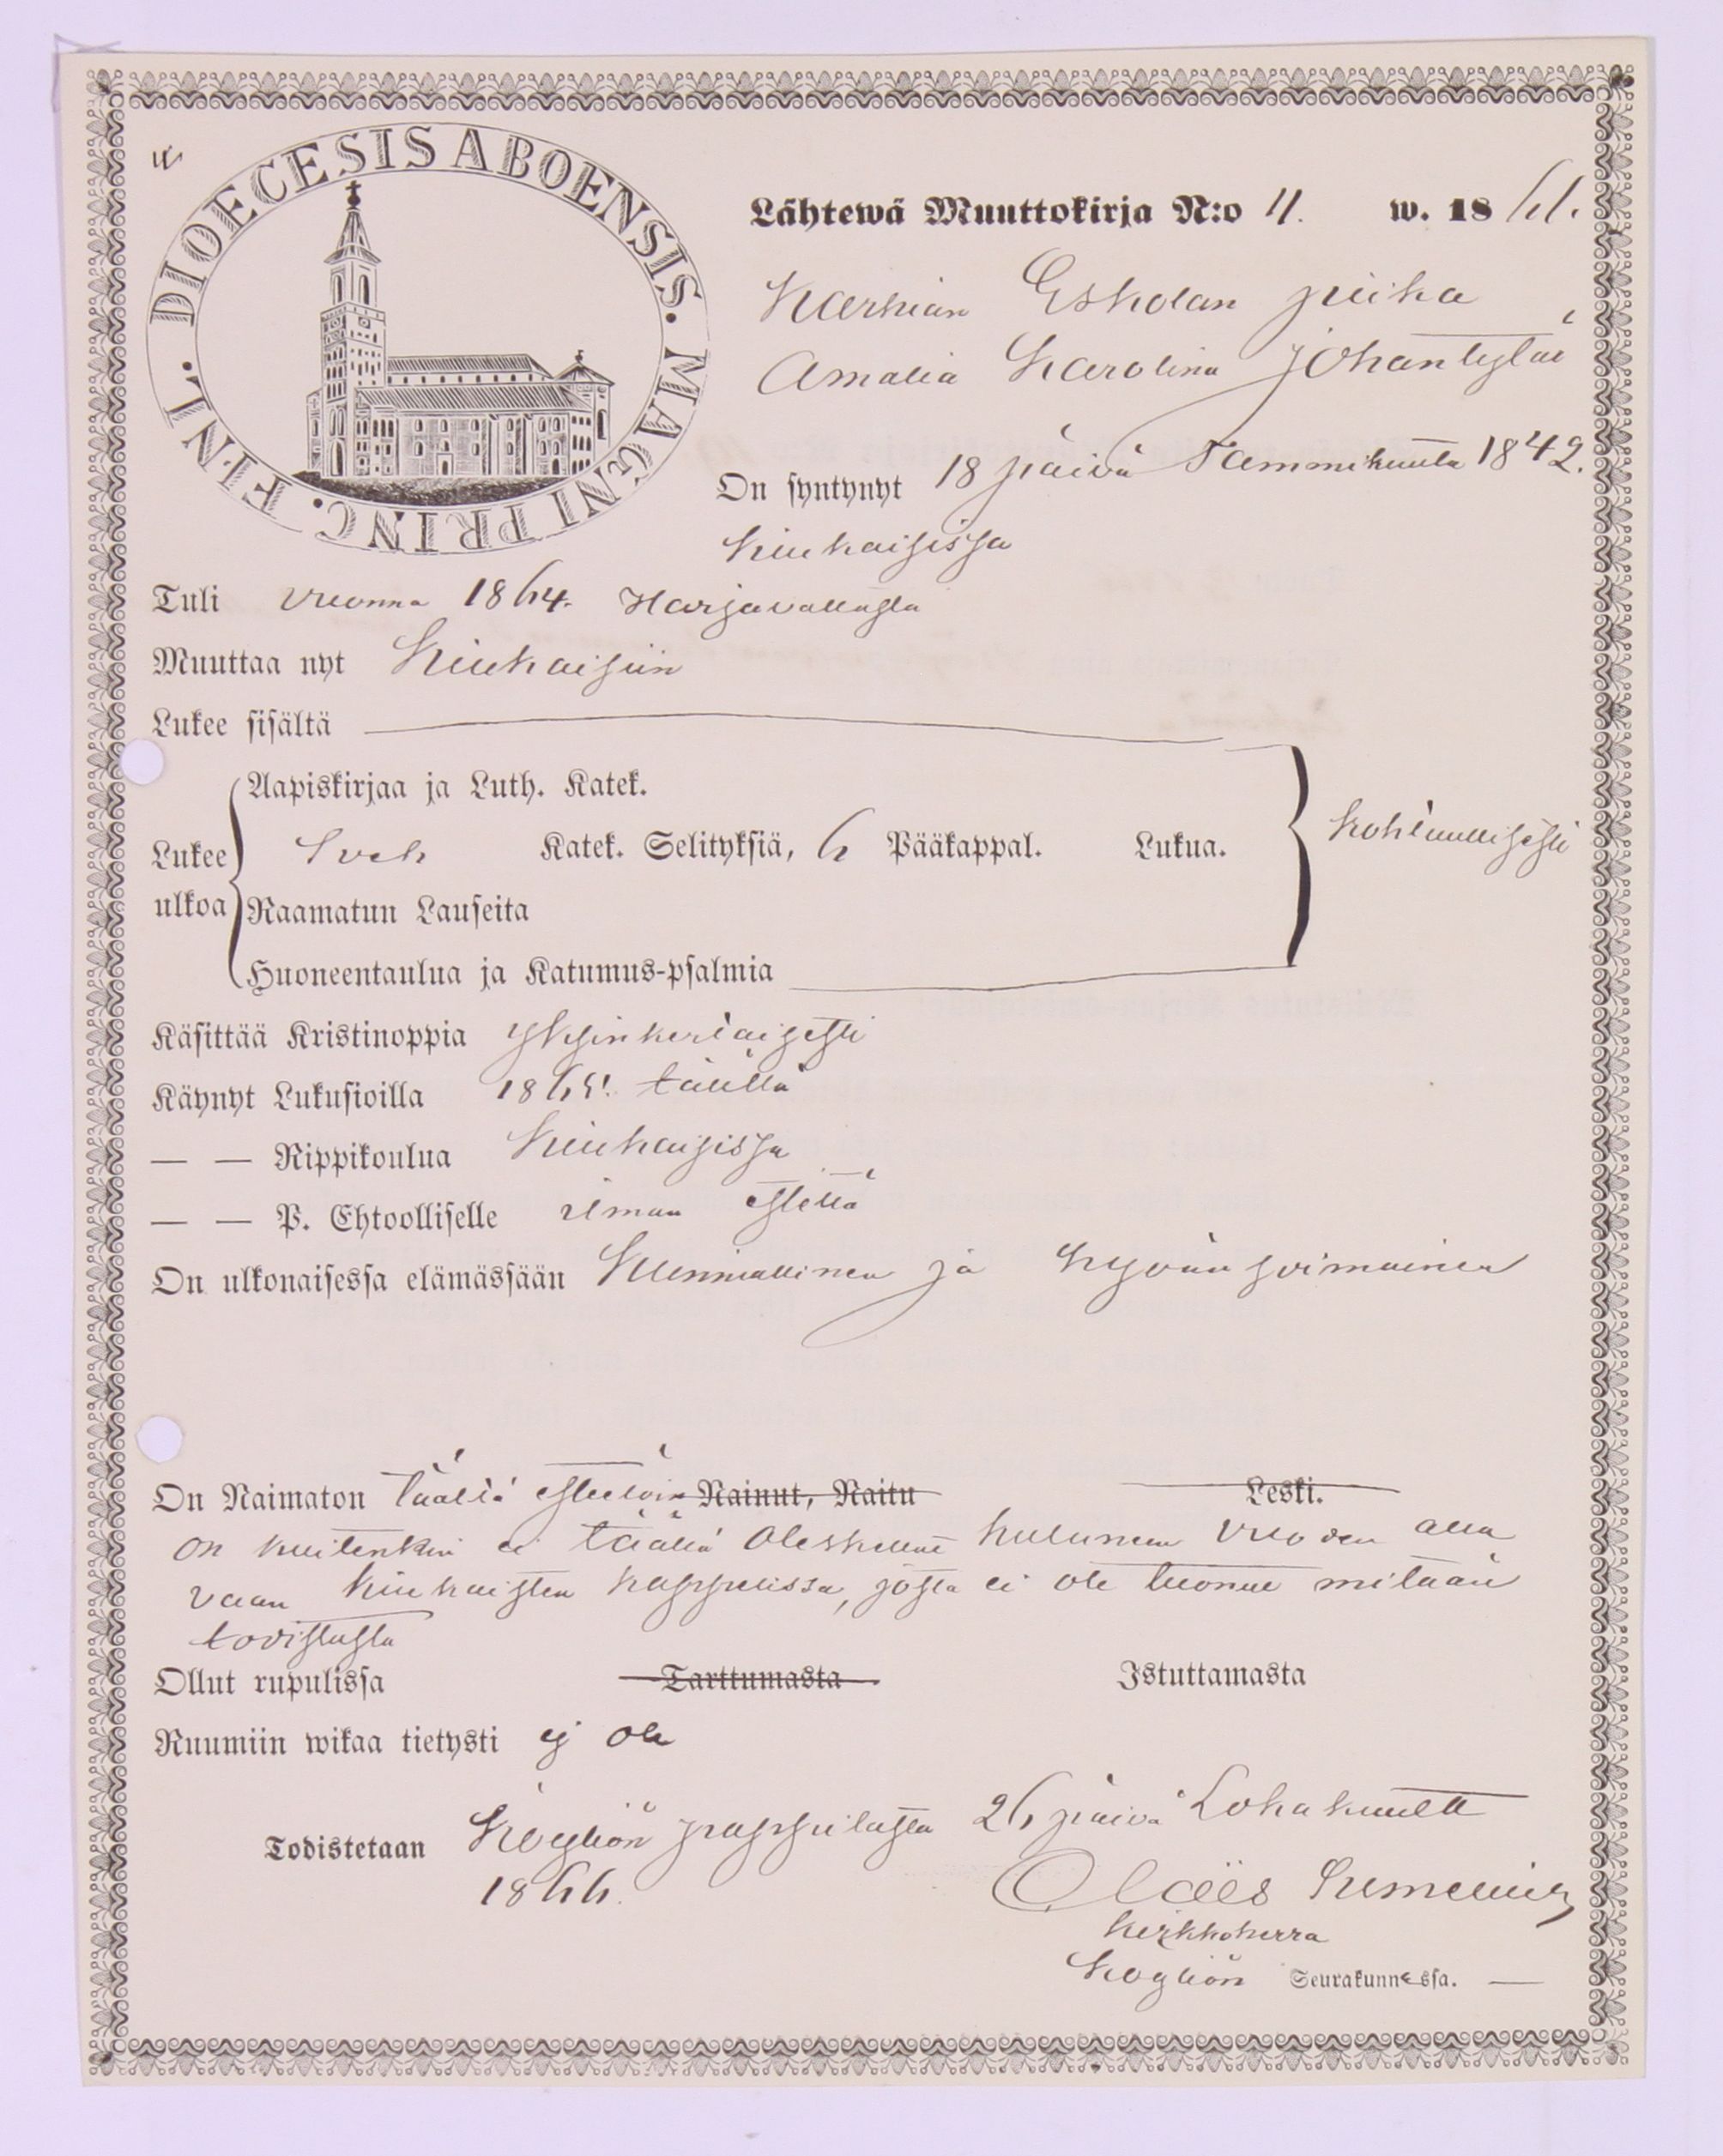 DIOECESIS ABOENSIS. MAGNI PRINC. FINL.
Lähtewä Muuttokirja N:o 11. w. 1866.
Eskolan piika
Amalia Karolina Johantytär
On syntynyt 18 päivä Tammikuuta 1842.
Kiukaisissa
Tuli vuonna 1864. Harjavallasta
Muuttaa nyt Kiukaisiin
Lukee sisältä
Aapiskirjaa ja Luth. Katek.
Lukee ulkoa Sveb Katek. Selityksiä, 6 Pääkappal. Lukua. kohtuullisesti
Raamatun Lauseita
Huoneentaulua ja Katumus-psalmia
Käsittää Kristinoppia yksinkertaisesti
Käynyt Lukusioilla 1865. täällä
— — Rippikoulua Kiukaisissa
— — P. Ehtoolliselle ilman estettä
On ulkonaisessa elämässään Kunniallinen ja hyvän
On Naimaton täällä esteetöin Nainut, Naitu Leski.
on kuitenkin ei täällä oleskellut kuluneen vuoden alla
vaan Kiukaisten kappelissa, josta ei ole tuonut mitään
todistusta
Ollut rupulissa Tarttumasta Istuttamasta
Ruumiin wikaa tietysti ej ole
Todistetaan Köyliön pappilasta 26 päivä Lokakuuta
1866.
Kirkkoherra
Köyliön Seurakunnassa. —